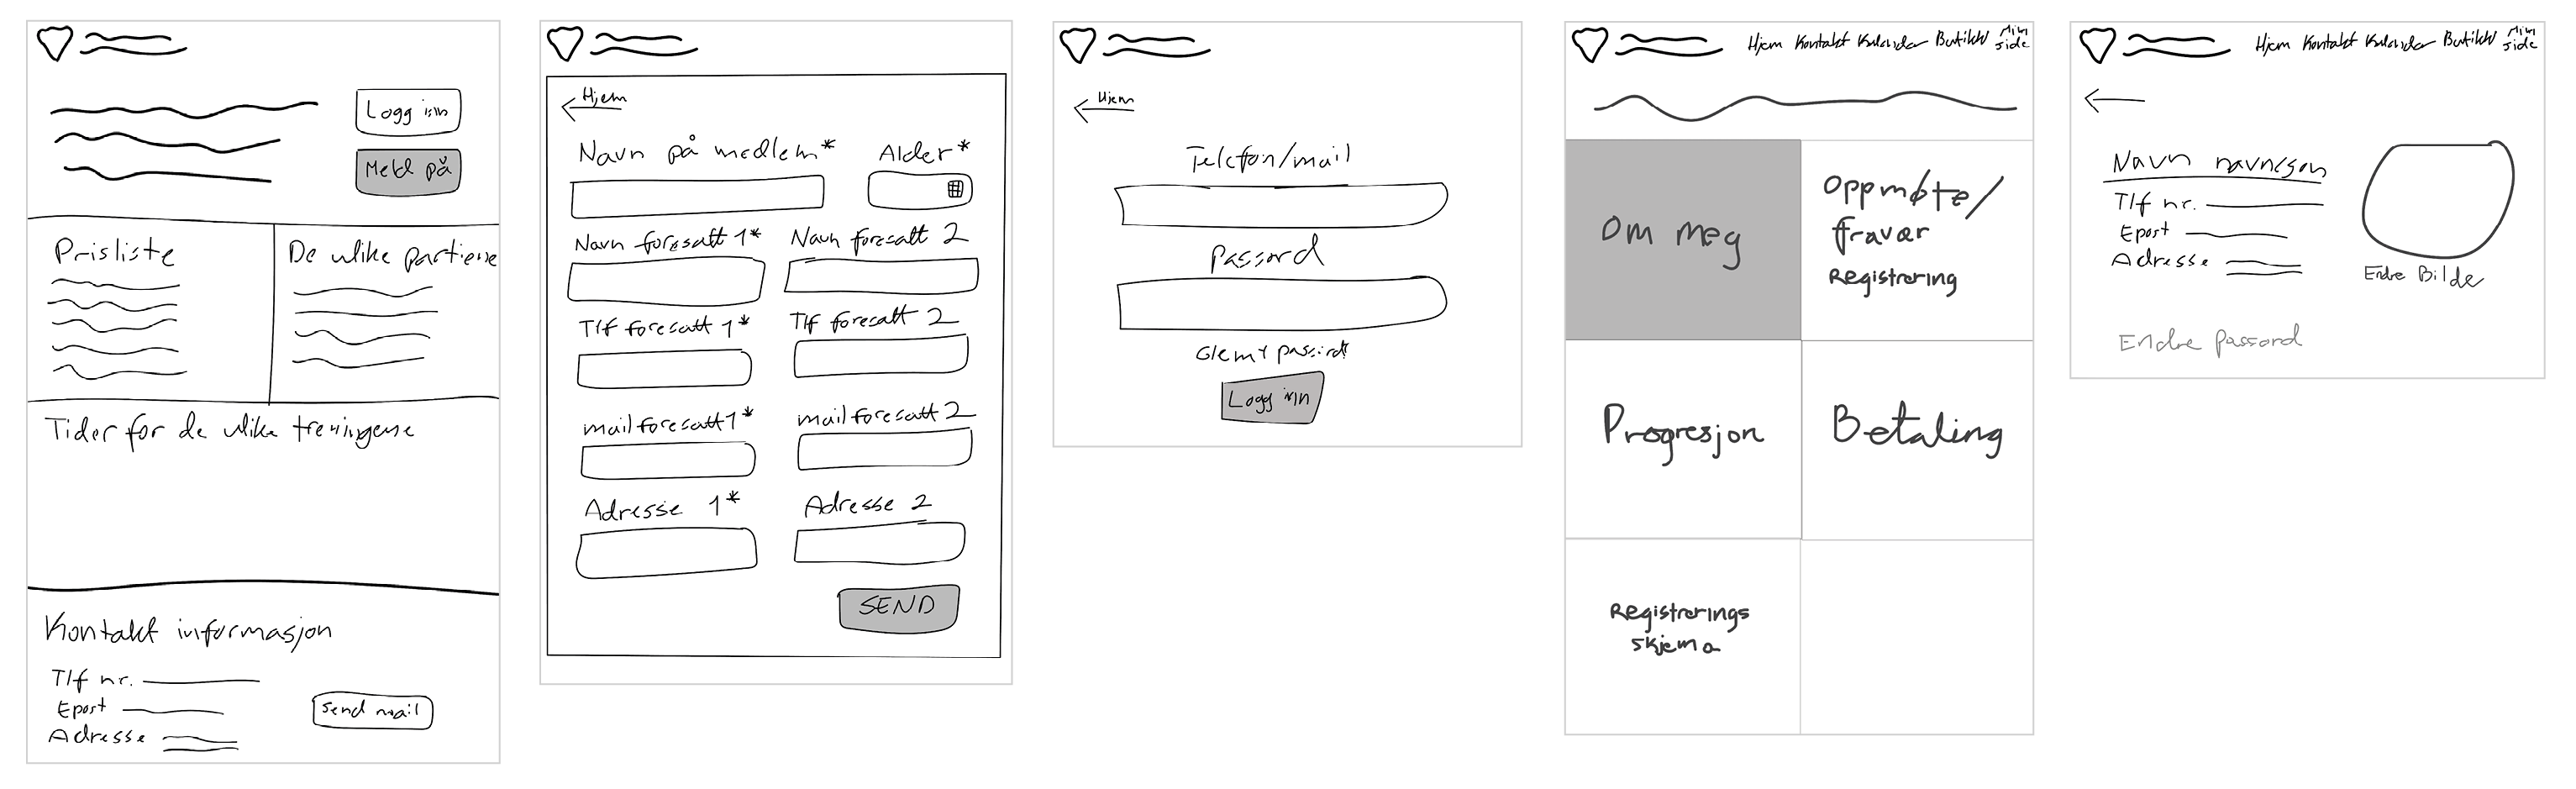 Logg inn
Meld på
Prisliste
De ulike partiene
Tider for de ulike treningene
Kontakt informasjon
Tlf nr.
Epost
Adresse
Send mail
Hjem
Navn på medlem*
Alder*
Navn foresatt 1*
Navn foresatt 2
Tlf foresatt 1*
Tlf foresatt 2
mail foresatt 1*
mail foresatt 2
Adresse 1*
Adresse 2
SEND
Hjem
Telefon/mail
Passord
Glemt passord?
Logg inn
Hjem Kontakt Kalender Butikk Min side
Om meg
Oppmøte/
fravær
Registrering
Progresjon
Betaling
Registrerings
skjema
Hjem Kontakt Kalender Butikk Min side
Navn navnesen
Tlf nr.
Epost
Adresse
Endre Bilde
Endre passord